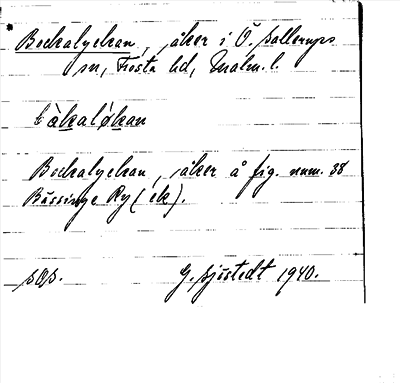 Backalyckan, åker i Ö. Sallerups
sn, Frosta hd, Malm. l.
bàkalókan
Backalyckan, åker å fig. num. 38
Bässinge Ry (ek).
sOs.
G. Sjöstedt 1940.